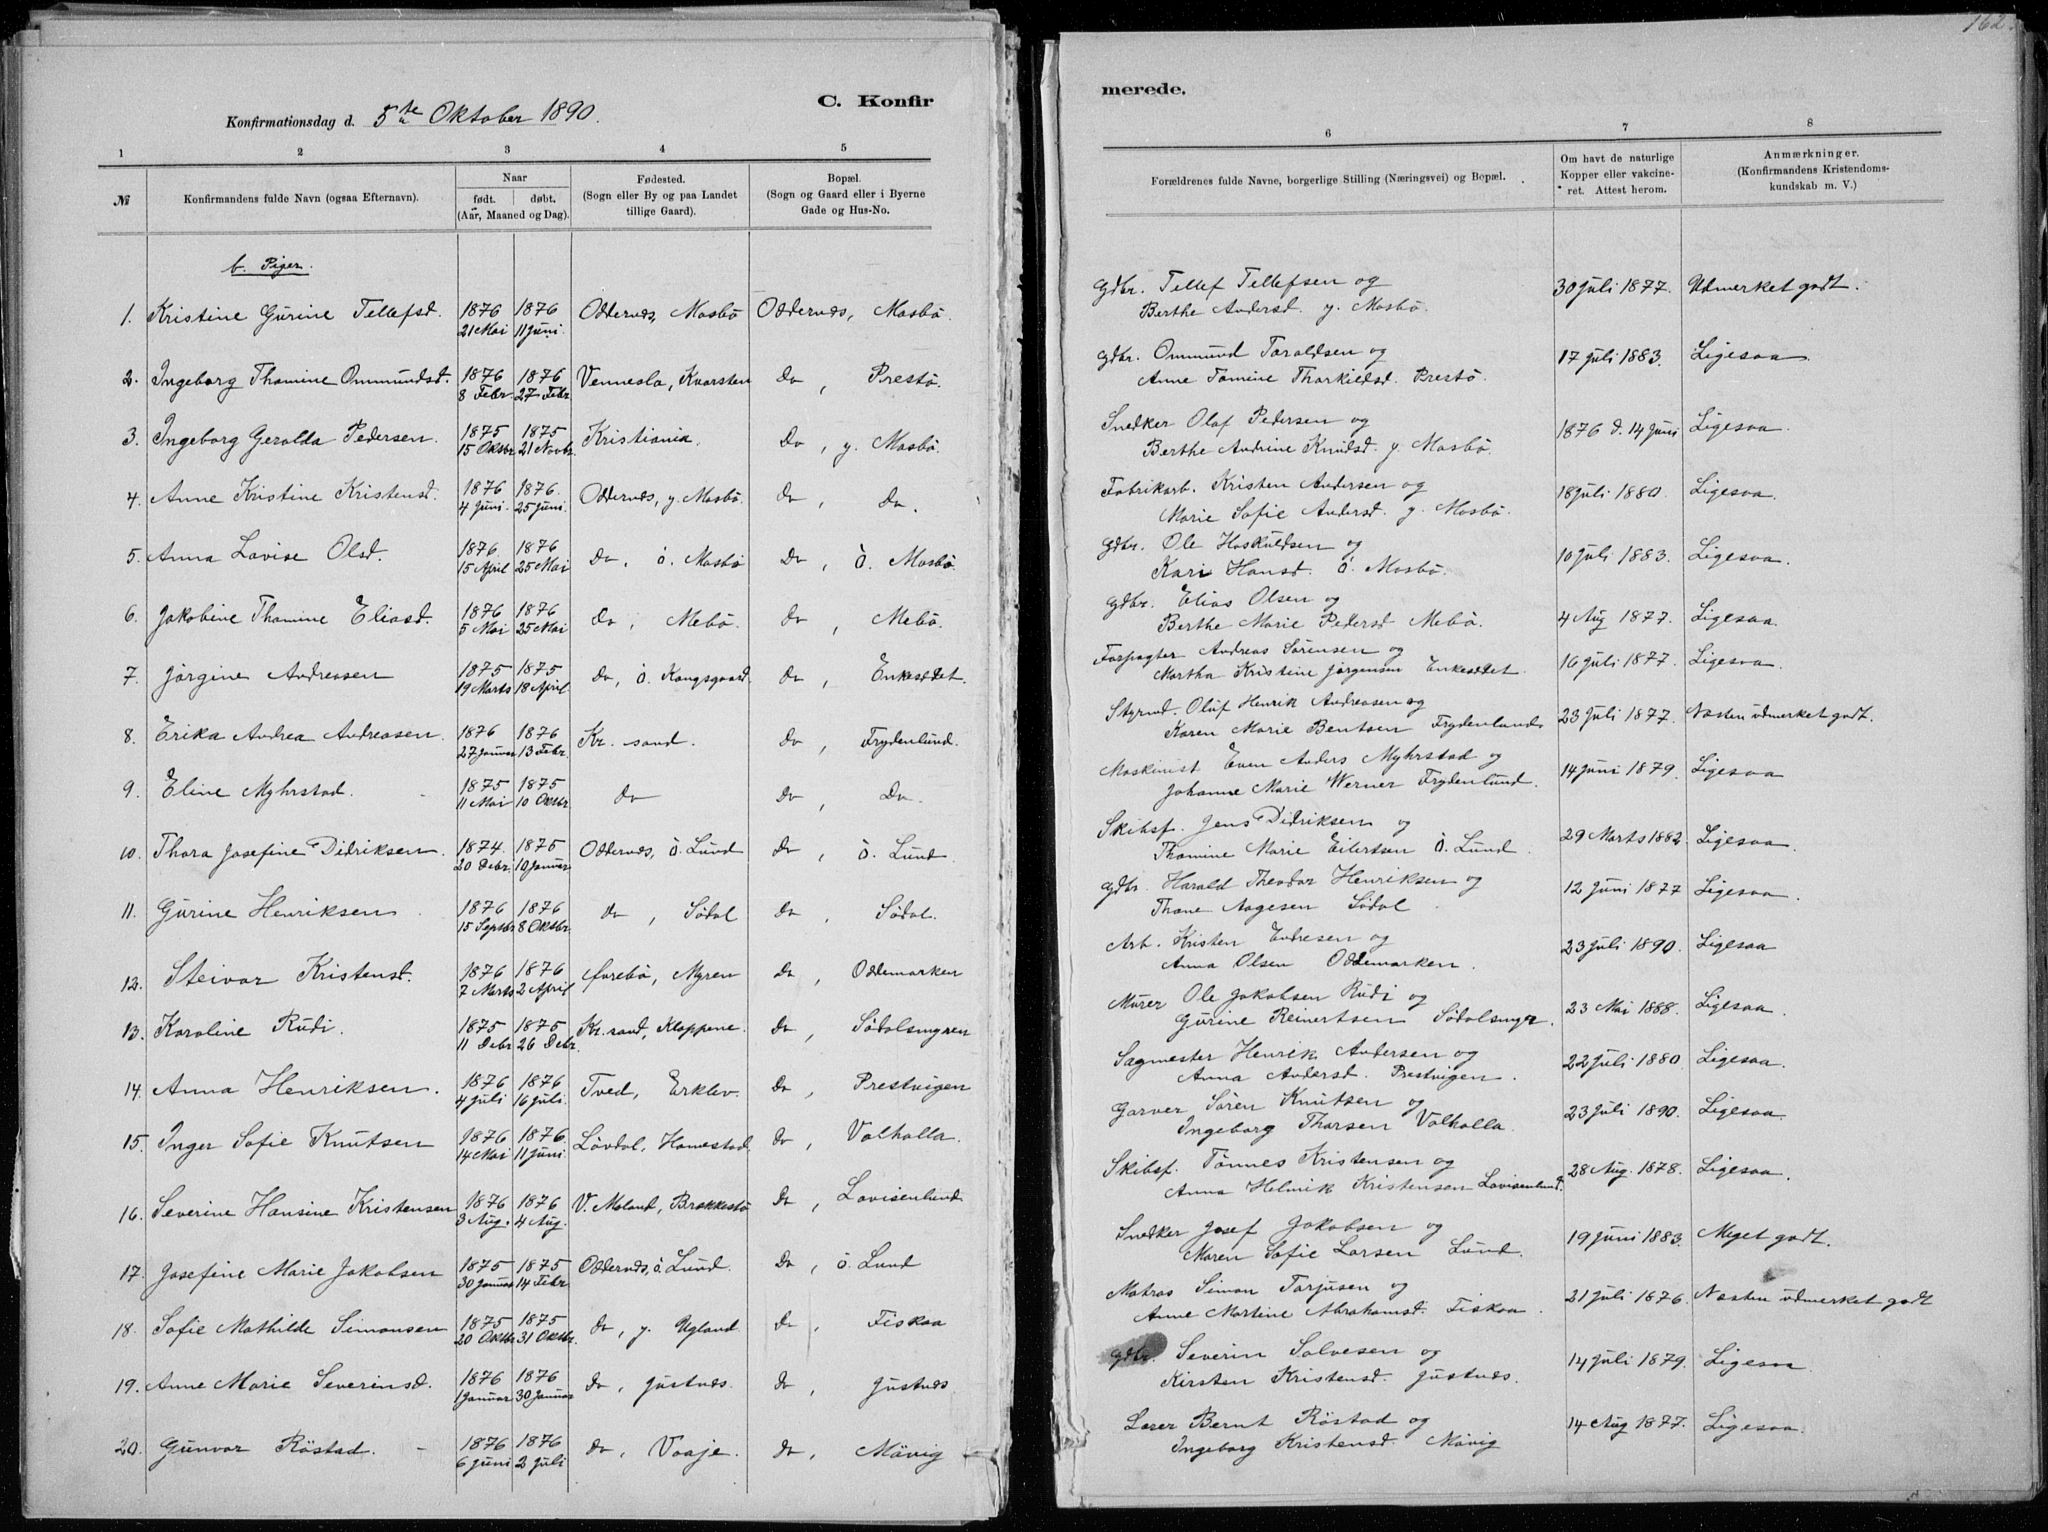 162.
C. Konfir
merede.
Konfirmationsdag d. 5te Oktober 1890.
1 2 3 4 5
6 7 8
№
Konfirmandens fulde Navn (ogsaa Efternavn).
Naar
født. døbt.
(Aar, Maaned og Dag).
Fødested.
(Sogn eller By og paa Landet
tillige Gaard).
Bopæl.
(Sogn og Gaard eller i Byerne
Gade og Hus-No.
Forældrenes fulde Navne, borgerlige Stilling (Næringsvei) og Bopæl.
Om havt de naturlige
Kopper eller vakcine-
ret. Attest herom.
Anmærkninger.
(Konfirmandens Kristendoms-
kundskab m. V.)
b. Piger.
1. Kristine Gurine Tellefsd. 1876 21 Mai 1876 11 Juni Oddernæs, Mosbö Oddernæs, Mosbö.
Gdbr. Tellef Tellefsen og
Berthe Andersd. y. Mosbö. 30 Juli 1877. Udmerket godt.
2. Ingeborg Thomine Ommundsd. 1876 8 Febr. 1876 27 Febr. Vennesla, Kvarsten Do, Prestö.
Gdbr. Ommund Taraldsen og
Anne Tomine Thorkildsd. Prestö. 17 Juli 1883. Ligesaa.
3. Ingeborg Geralda Pedersen. 1875 15 Oktbr. 1875 21 Novbr. Kristiania. Do, y. Mosbö.
Snedker Olaf Pedersen og
Berthe Andrine Knudsd. y. Mosbö. 1876 d. 14 Juni Ligesaa.
4. Anne Kristine Kristensd. 1876 4 Juni 1876. 25 Juni. Oddernæs, y. Mosbö. Do, Do.
Fabrikarb. Kristen Andersen og
Marie Sofie Andersd. y. Mosbö. 18 Juli 1880. Ligesaa.
5. Anna Lovise Olsd. 1876. 15 April 1876 25 Mai Do, ö. Mosbö Do, ö. Mosbö.
Gdbr. Ole Hoskuldsen og
Kari Hansd. ö. Mosbö. 10 Juli 1883. Ligesaa.
6. Jakobine Thomine Eliasd. 1876 5 Mai 1876 25 Mai Do, Mebö. Do, Mebö.
Gdbr. Elias Olsen og
Berthe Marie Pedersd Mebö. 4 Aug 1877. Ligesaa.
7. Jörgine Andreasen 1875 19 Marts 1875 18 April. Do, ö. Kongsgaard. Do, Enkesædet.
Forpagter Andreas Sörensen og
Martha Kristine Jörgensen Enkesædet. 16 Juli 1877. Ligesaa.
8. Erika Andrea Andreasen. 1876 27 Januar 1876 13 Febr. Kr. sand. Do, Frydenlund.
Styrmd. Oluf Henrik Andreasen og
Karen Marie Bentsen Frydenlund. 23 Juli 1877. Næsten udmerket godt.
9. Eline Myhrstad. 1875 11 Mai 1875 10 Oktbr. Do Do, Do.
Maskinist Even Anders Myhrstad og
Johanne Marie Werner Frydenlund. 14 Juni 1879. Ligesaa
10. Thora Josefine Didriksen. 1874. 20 Debr. 1875 10 Januar Oddernæs, ö. Lund Do, ö. Lund.
Skibsf. Jens Didriksen og
Thomine Marie Eilertsen ö. Lund. 29 Marts 1882. Ligesaa.
11. Gurine Henriksen 1876 15 Septbr 1876 8 Oktbr. Do, Södal Do, Södal.
Gdbr. Harald Theodor Henriksen og
Thone Aagesen Södal 12 Juni 1877 Ligesaa.
12. Steivor Kristensd. 1876 7 Marts 1876 2 April Övrebö, Myren Do, Oddemarken
Arb. Kristen Endresen og
Anna Olsen Oddemarken. 23 Juli 1890. Ligesaa
13. Karoline Rudi. 1875 11 Debr 1875 26 Debr. Kr. sand, Kloppene. Do, Södalsmyren
Murer Ole Jakobsen Rudi og
Gurine Reinertsen Södalsmyr. 23 Mai 1888. Ligesaa.
14. Anna Henriksen. 1876 4 Juli 1876 16 Juli. Tved, Erklev. Do, Prestvigen
Sagmester Henrik Andersen og
Anna Andersd. Prestvigen. 22 Juli 1880. Ligesaa.
15. Inger Sofie Knutsen 1876 14 Mai 1876. 11 Juni. Lövdal, Homestad. Do, Valhalla.
Garver Sören Knutsen og
Ingeborg Thorsen Valhalla. 23 Juli 1890. Ligesaa.
16. Severine Hansine Kristensen 1876 3 Aug. 1876 4 Aug. V. Moland, Brækkestö Do, Lovisenlund
Skibsf. Tönnes Kristensen og
Anna Helmik Kristensen Lovisenlund. 28 Aug. 1878. Ligesaa.
17. Josefine Marie Jakobsen 1875 30 Januar 1875 14 Febr Oddernæs, ö. Lund. Do, ö. Lund
Snedker Josef Jakobsen og
Maren Sofie Larsen Lund. 19 Juni 1883. Meget godt.
18. Sofie Mathilde Simonsen 1875 20 Oktbr 1875 31 Oktbr. Do, y. Ugland. Do, Fiskaa
Matros Simon Torjusen og
Anne Martine Abrahamsd. Fiskaa. 21 Juli 1876. Næsten udmerket godt
19. Anne Marie Severinsd. 1876 1 Januar 1876 30 Januar Do, Justnæs. Do, Justnæs
Gdbr. Severin Salvesen og
Kirsten Kristensd. Justnæs. 14 Juli 1879. Ligesaa
20. Gunvor Röstad. 1876 6 Juni 1876 2 Juli Do, Voaje. Do, Mövig
Lærer Bernt Röstad og
Ingeborg Kristensd. Mövig 14 Aug 1877. Ligesaa.